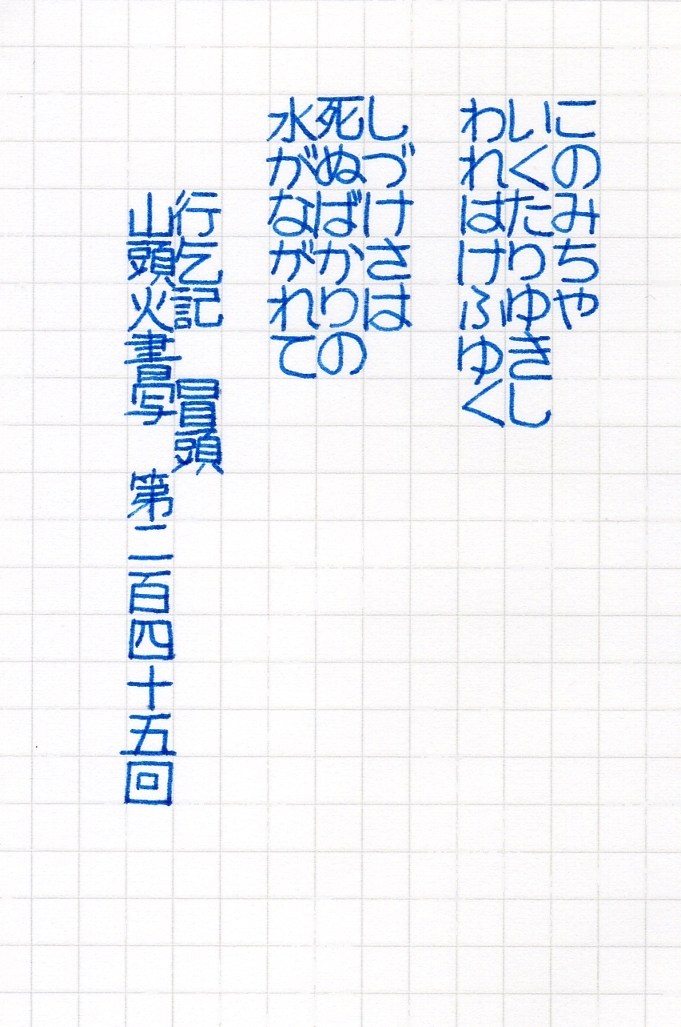 このみちや
いくたりゆきし
われはけふゆく
しづけさは
死ぬばかりの
水がながれて
行乞記　冒頭
山頭火書写　第二百四十五回